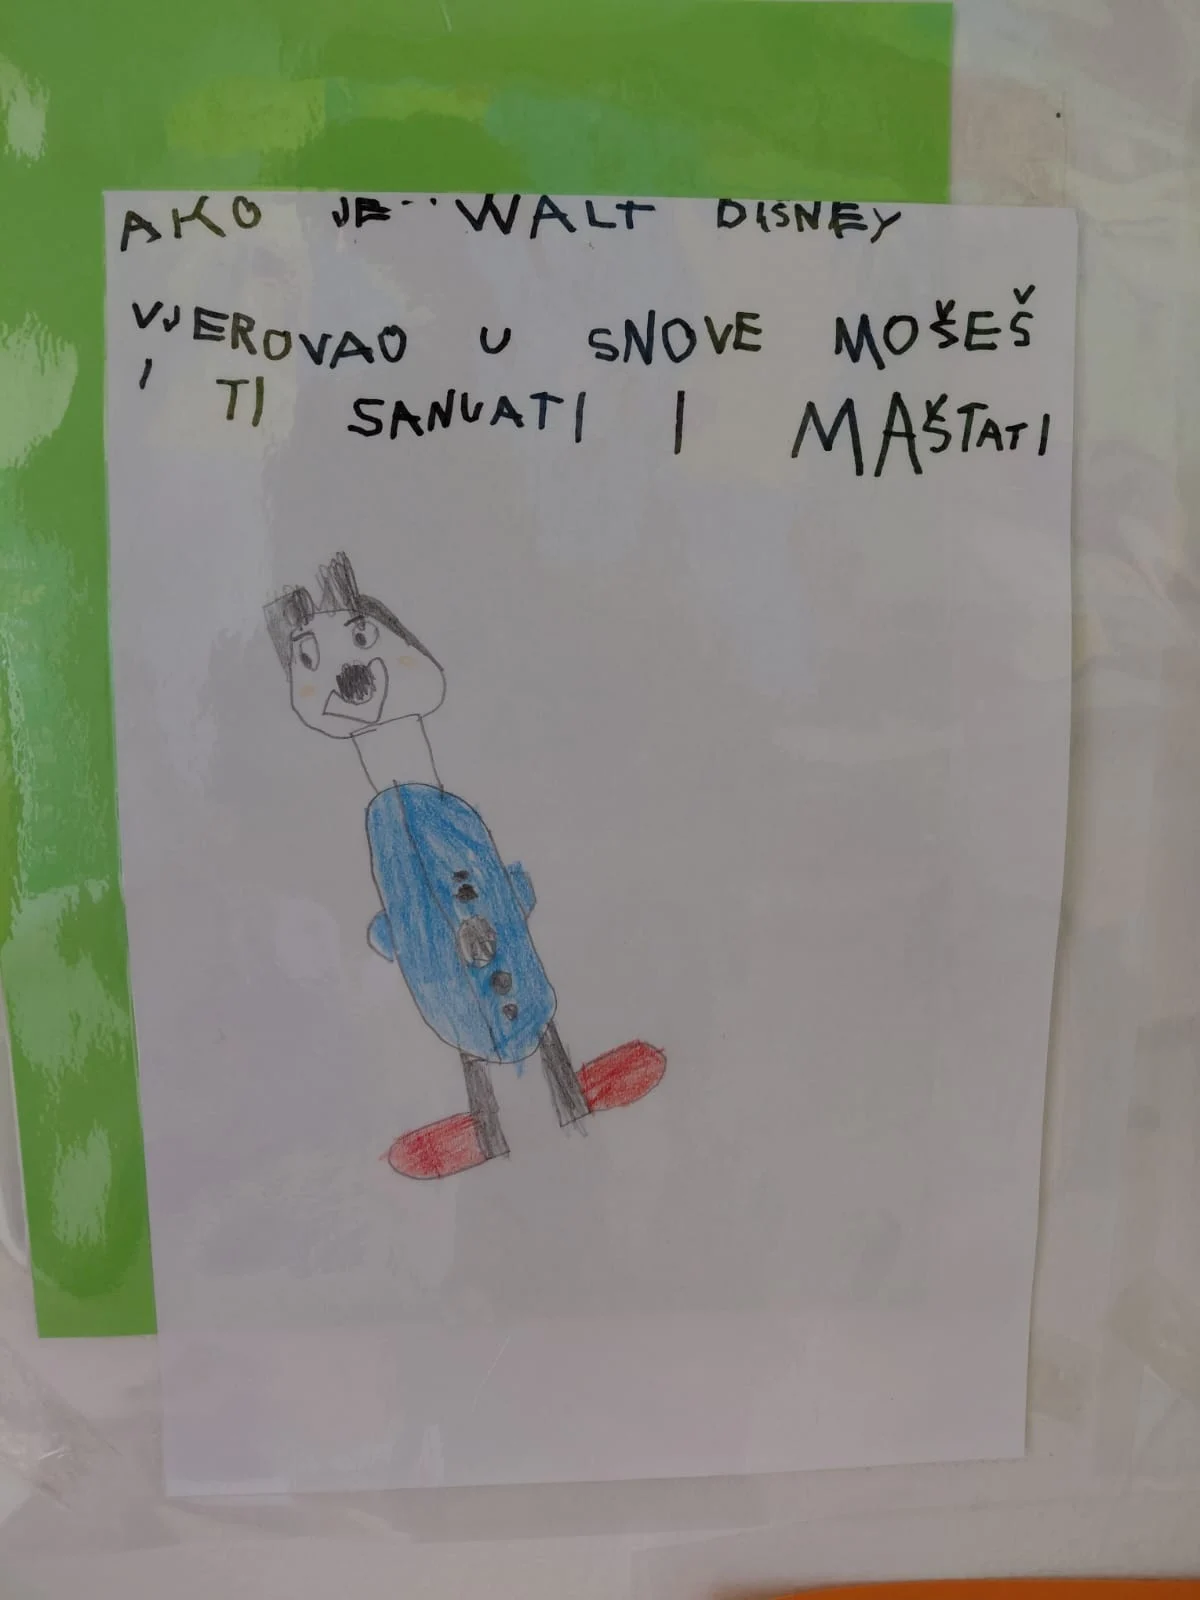 AKO JE WALT DISNEY
VJEROVAO U SNOVE MOŠEŠ
I TI SANVATI I MAŠTATI